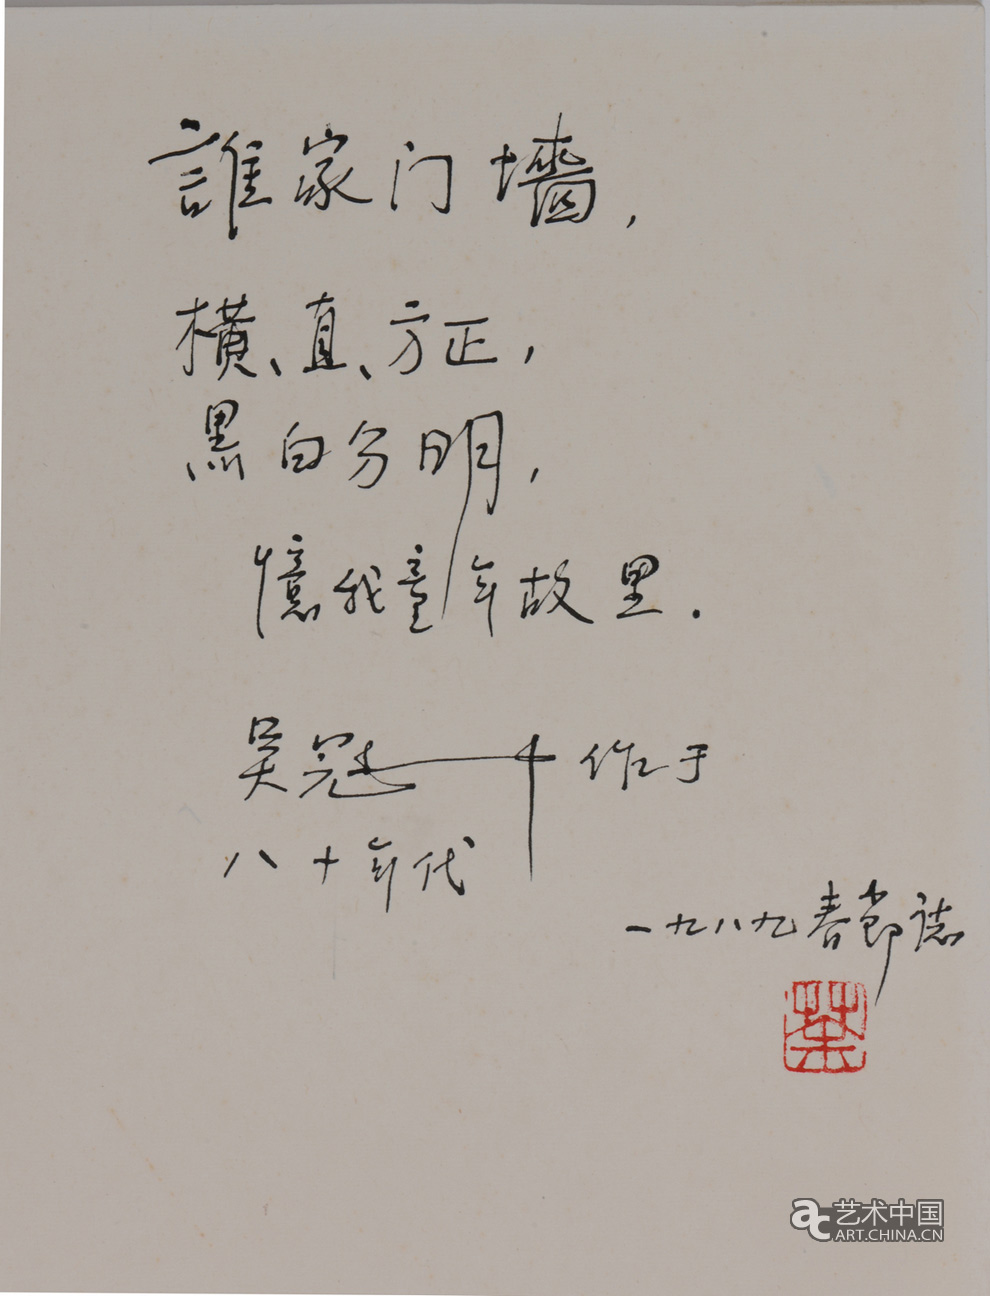 誰家门墻，
横、直、方正，
黑白分明，
憶我童年故里．
吴冠中作于
八十年代
一九八九春節誌
荼
艺术中国
ART.CHINA.CN